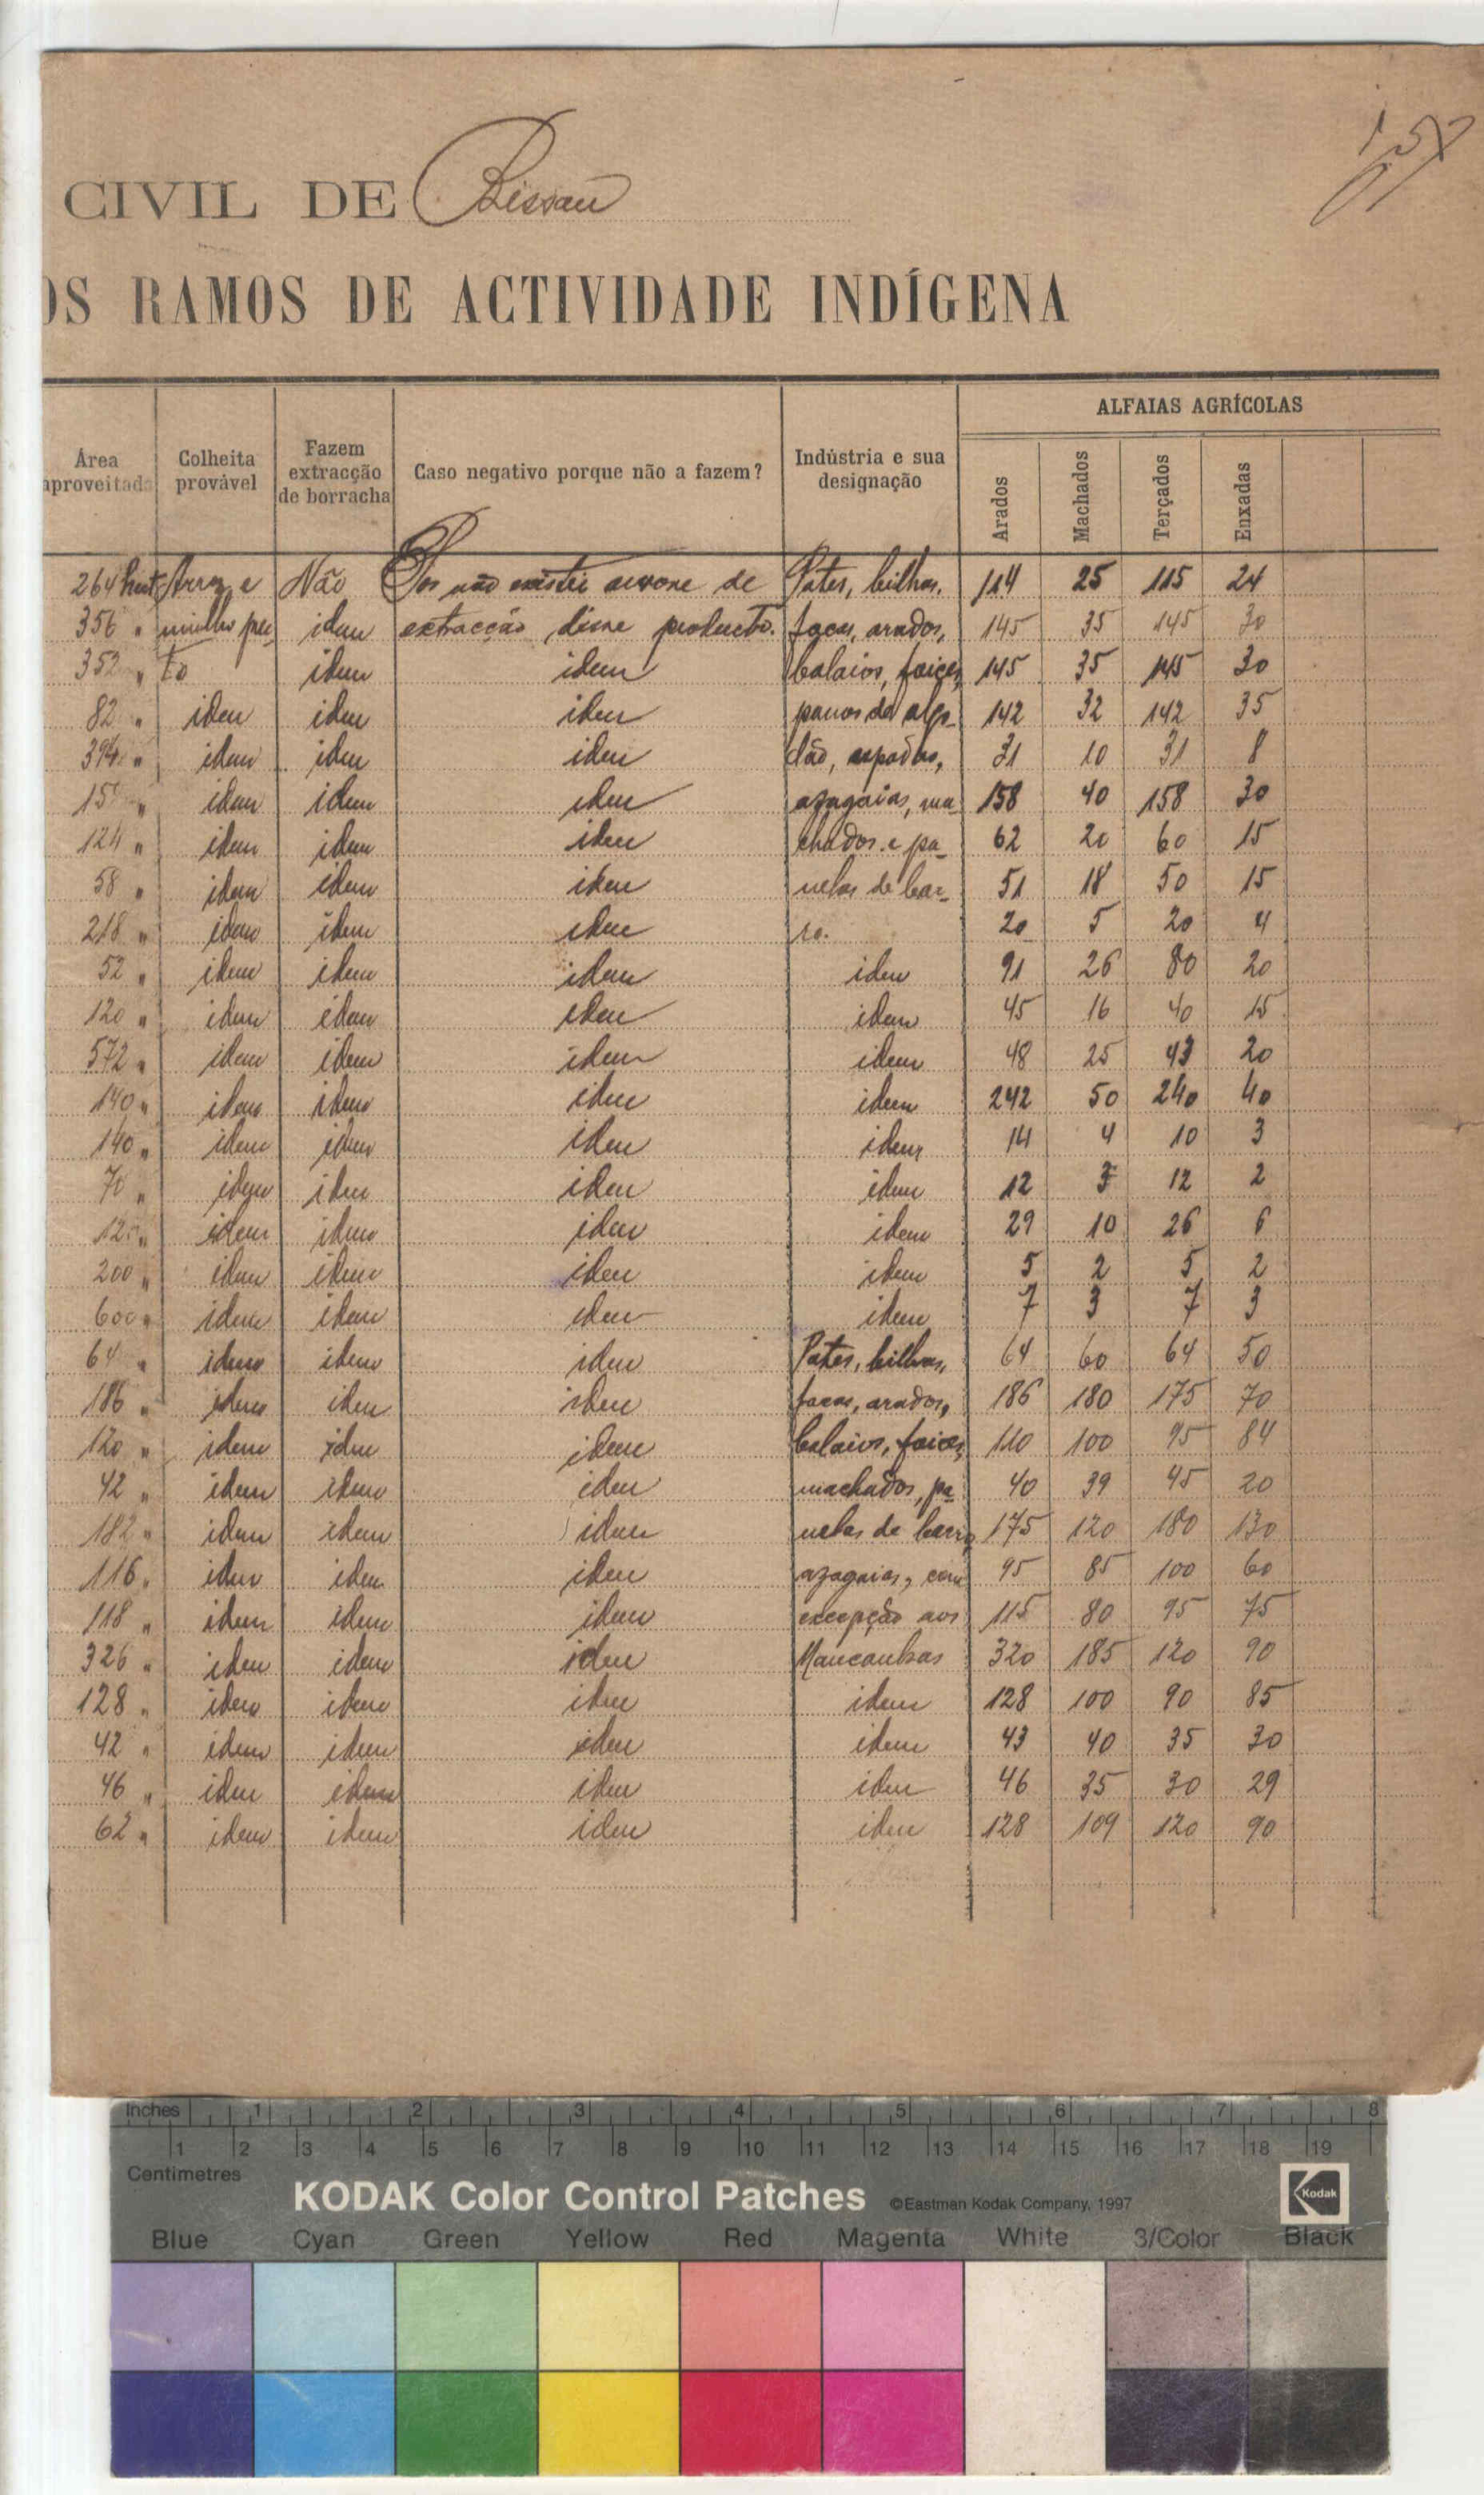 CIVIL DE Bissau
157
OS RAMOS DE ACTIVIDADE INDÍGENA
Área aproveitada
Colheita provável
Fazem extracção de borracha
Caso negativo porque não a fazem?
Indústria e sua designação
ALFAIAS AGRÍCOLAS
Arados
Machados
Terçados
Enxadas
264 hect Arroz e Não Por não existir arvore de Potes, bilhas, 114 25 115 24
356 " milho pre idem extracção desse producto. facas, arados, 145 35 145 30
352 " to idem idem balaios, foices, 145 35 145 30
82 " idem idem idem panos de algo- 142 32 142 35
394 " idem idem idem dão, espadas, 31 10 31 8
15 " idem idem idem azagaias, ma 158 40 158 30
124 " idem idem idem chados e pa- 62 20 60 15
58 " idem idem idem nelas de bar- 51 18 50 15
218 " idem idem idem ro. 20 5 20 4
52 " idem idem idem idem 91 26 80 20
120 " idem idem idem idem 45 16 40 15
572 " idem idem idem idem 48 25 43 20
140 " idem idem idem idem 242 50 240 40
140 " idem idem idem idem 14 4 10 3
70 " idem idem idem idem 12 3 12 2
120 " idem idem idem idem 29 10 26 6
200 " idem idem idem idem 5 2 5 2
600 " idem idem idem idem 7 3 7 3
64 " idem idem idem Potes, bilhas, 64 60 64 50
186 " idem idem idem facas, arados, 186 180 175 70
120 " idem idem idem balaios, foices, 110 100 95 84
42 " idem idem idem machados, pa- 40 39 45 20
182 " idem idem idem nelas de barro, 175 120 180 130
116 " idem idem idem azagaias, com 95 85 100 60
118 " idem idem idem excepção aos 115 80 95 75
326 " idem idem idem Mancanhas 320 185 120 90
128 " idem idem idem idem 128 100 90 85
42 " idem idem idem idem 43 40 35 30
46 " idem idem idem idem 46 35 30 29
62 " idem idem idem idem 128 109 120 90
Inches 1 2 3 4 5 6 7 8
1 2 3 4 5 6 7 8 9 10 11 12 13 14 15 16 17 18 19
Centimetres
KODAK Color Control Patches ©Eastman Kodak Company, 1997 Kodak
Blue Cyan Green Yellow Red Magenta White 3/Color Black